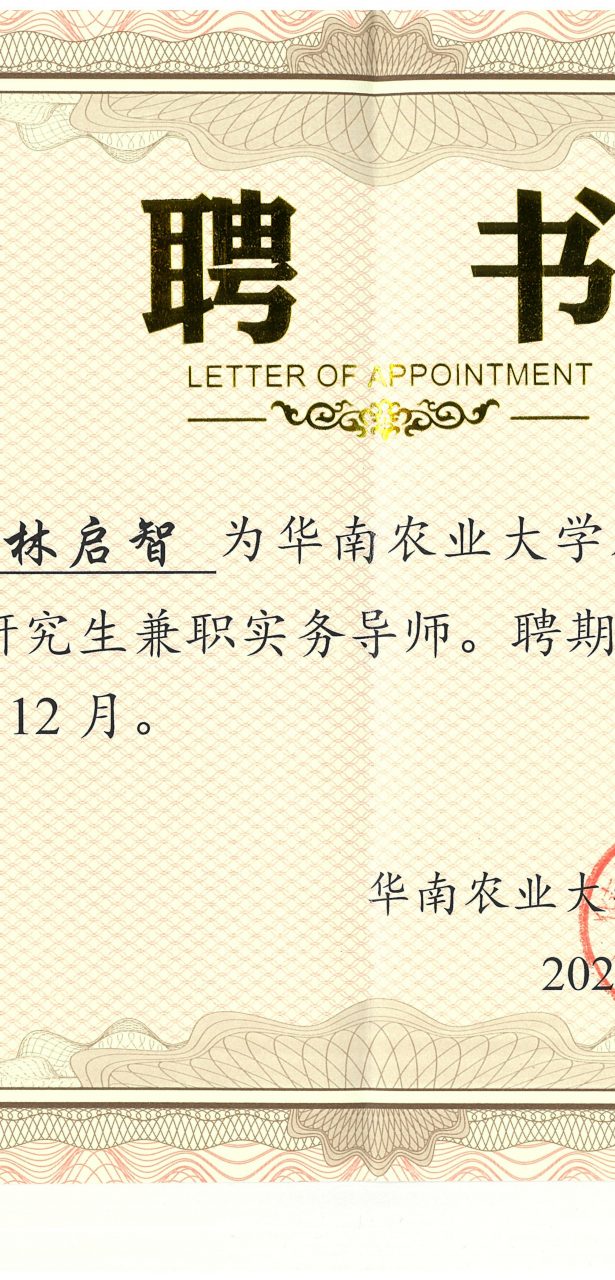 聘 书
LETTER OF APPOINTMENT
林启智 为华南农业大学
研究生兼职实务导师。聘期
12 月。
华南农业大
202